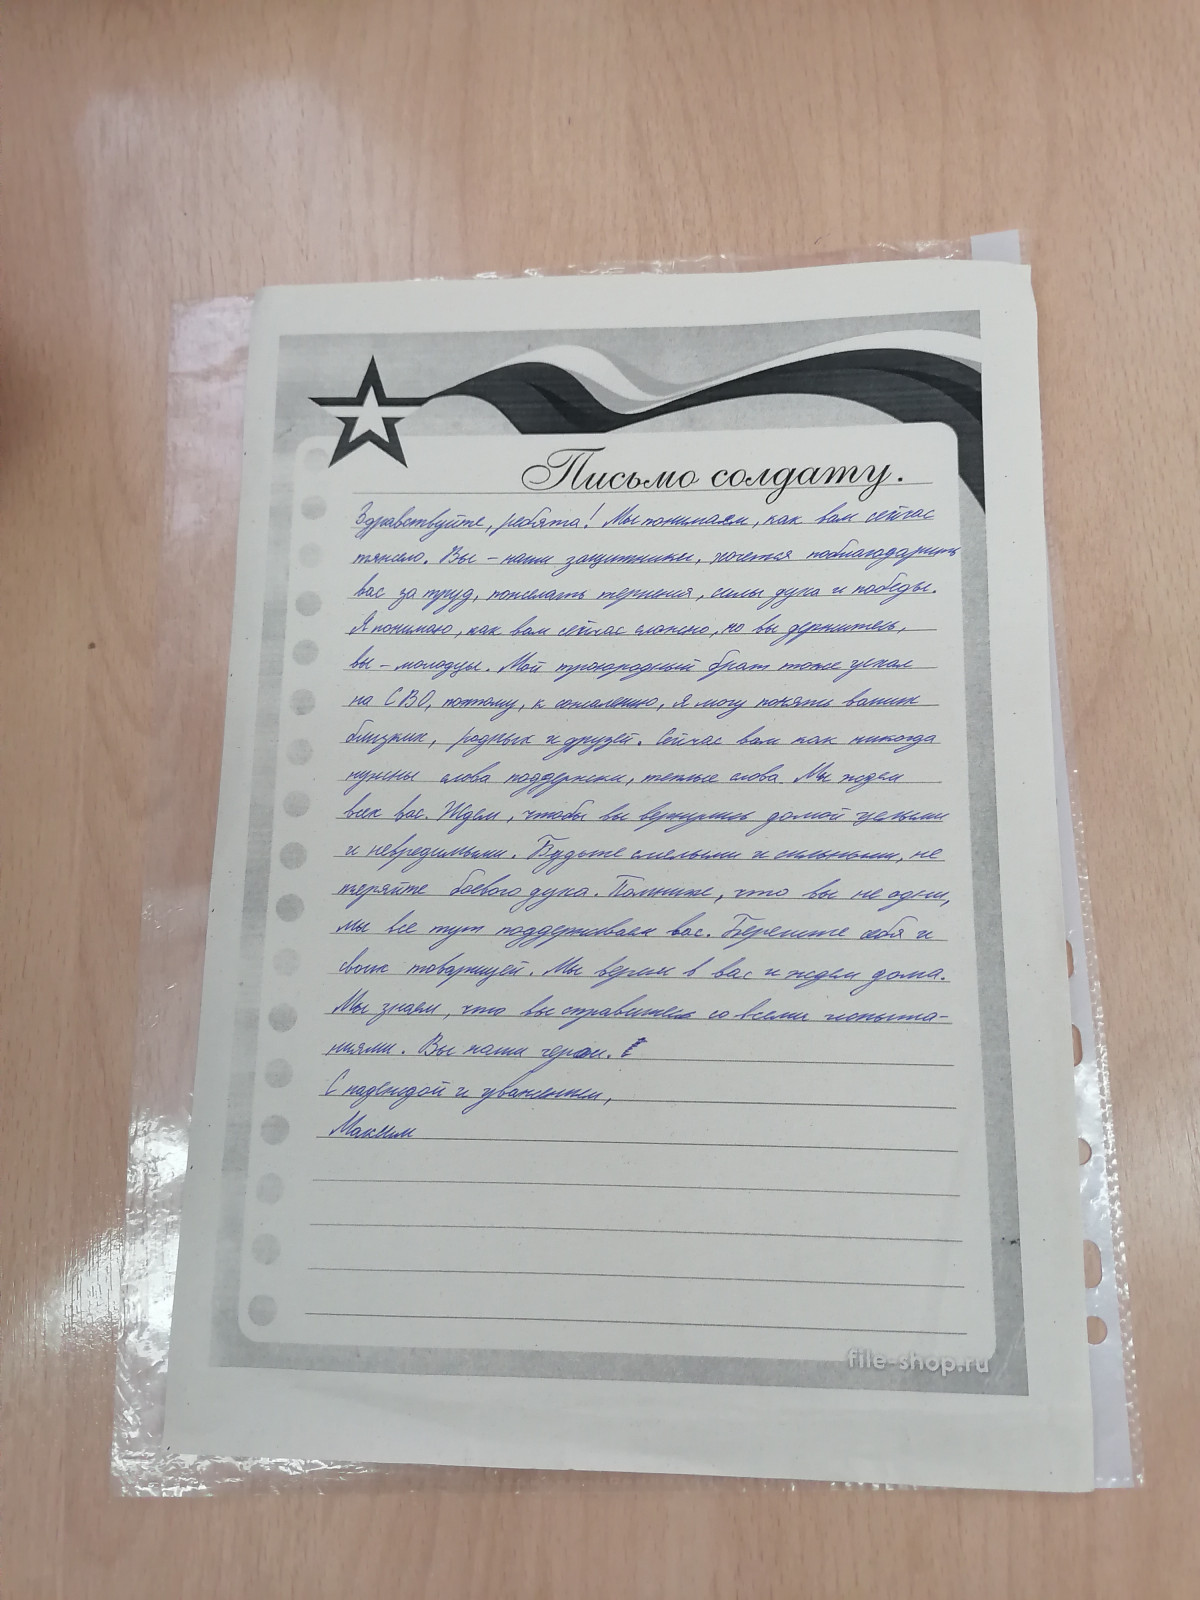 Письмо солдату.
Здравствуйте, ребята! Мы понимаем, как вам сейчас
тяжело. Вы – наши защитники, хочется поблагодарить
вас за труд, пожелать терпения, силы духа и победы.
Я понимаю, как вам сейчас сложно, но вы держитесь,
вы – молодцы. Мой троюродный брат тоже уехал
на СВО, поэтому, к сожалению, я могу понять ваших
близких, родных и друзей. Сейчас вам как никогда
нужны слова поддержки, теплые слова. Мы ждем
всех вас. Ждем, чтобы вы вернулись домой целыми
и невредимыми. Будьте смелыми и сильными, не
теряйте боевого духа. Помните, что вы не одни,
мы все тут поддерживаем вас. Берегите себя и
своих товарищей. Мы верим в вас и ждем дома.
Мы знаем, что вы справитесь со всеми испыта-
ниями. Вы наши герои.
С надеждой и уважением,
Максим
file-shop.ru